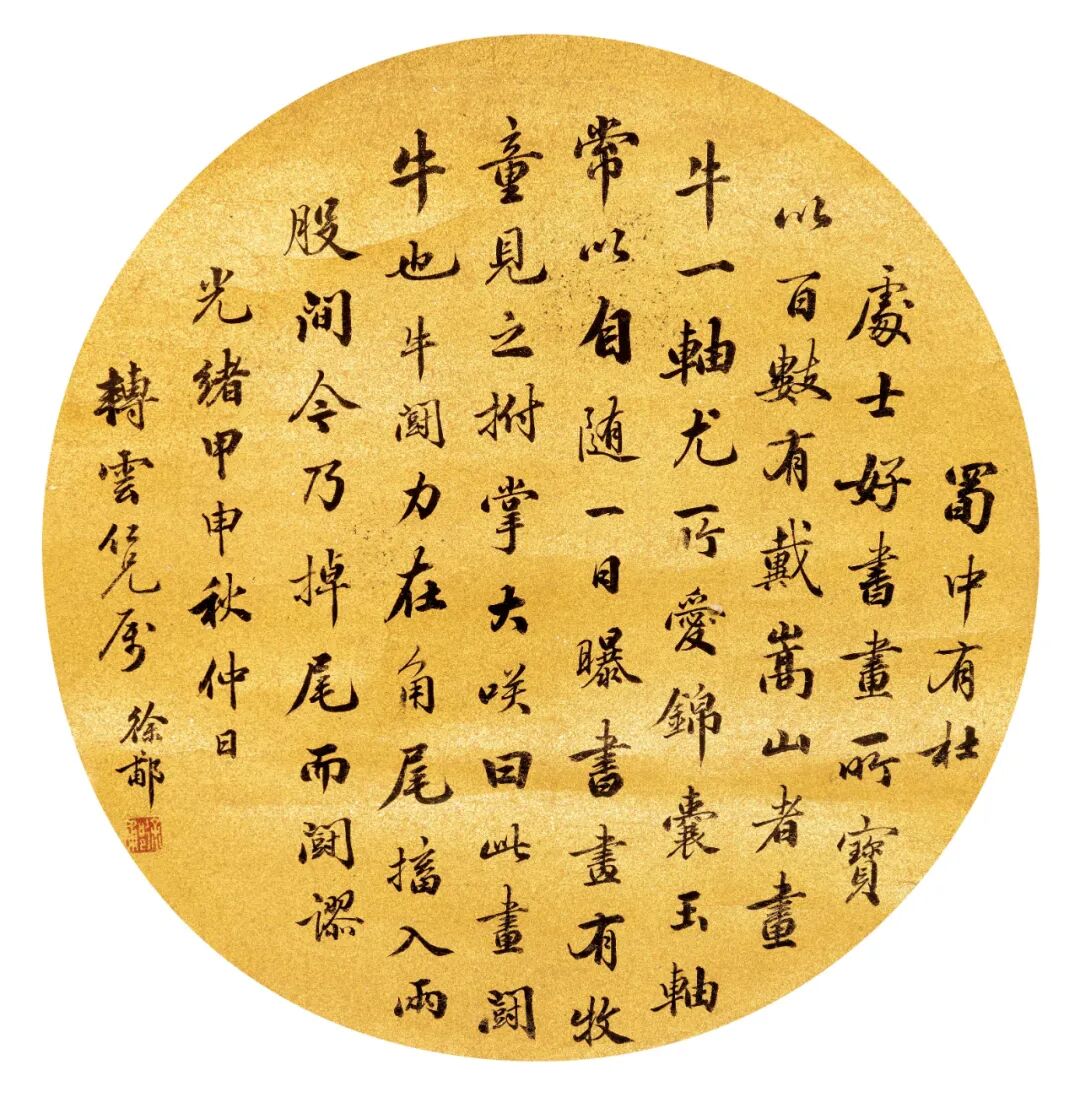 蜀中有杜
處士好書畫所寶
以百數有戴嵩山者畫
牛一軸尤所愛錦囊玉軸
常以自随一日曝書畫有牧
童見之拊掌大咲曰此畫闘
牛也牛闘力在角尾搐入兩
股間今乃掉尾而闘謬
光緒甲申秋仲日
轉雲仁兄属 徐郙